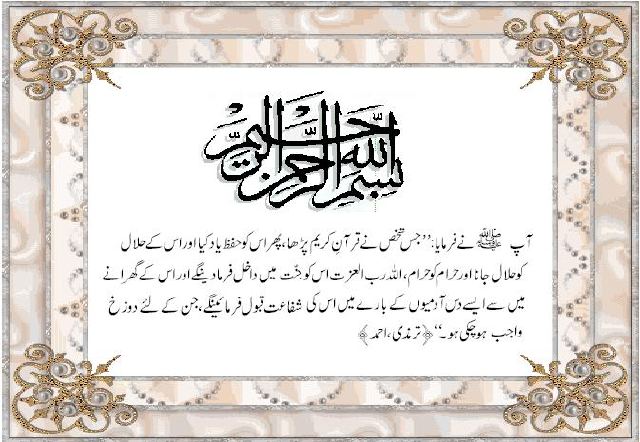 بسم الله الرحمن الرحيم
آپ ﷺ نے فرمایا: ’’جس شخص نے قرآنِ کریم پڑھا، پھر اس کو حفظ یاد کیا اور اس کے حلال
کو حلال جانا اور حرام کو حرام، اللہ رب العزت اس کو جنّت میں داخل فرما دینگے اور اس کے گھرانے
میں سے ایسے دس آدمیوں کے بارے میں اس کی شفاعت قبول فرمائینگے، جن کے لئے دوزخ
واجب ہو چکی ہو۔‘‘ ﴿ترمذی، احمد﴾